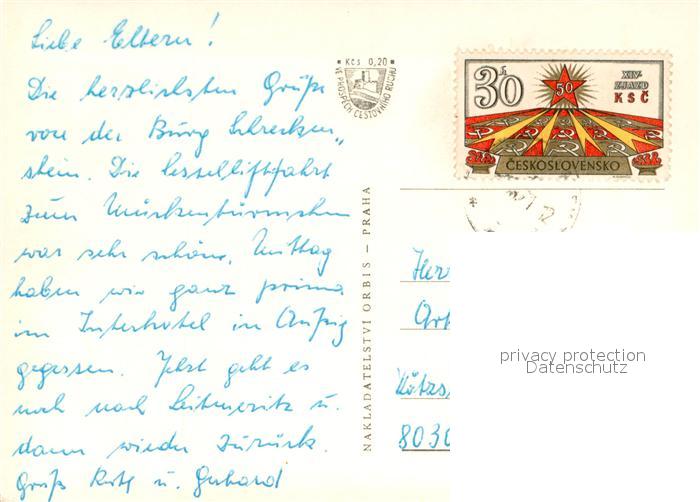 Liebe Eltern!
Die herzlichsten Grüße
von der Burg Schrecken„
stein. Die Sesselliftfahrt
zum Mückentürmchen
war sehr schön. Mittag
haben wir ganz prima
im Interhotel in Außig
gegessen. Jetzt geht es
noch nach Leitmeritz u.
dann wieder zurück.
Gruß Ruth u. Gerhard
Kčs 0,20
VE PROSPĚCH CESTOVNÍHO RUCHU
NAKLADATELSTVÍ ORBIS – PRAHA
30h
50
XIV.
ZJAZD
KSČ
ČESKOSLOVENSKO
privacy protection
Datenschutz
8030